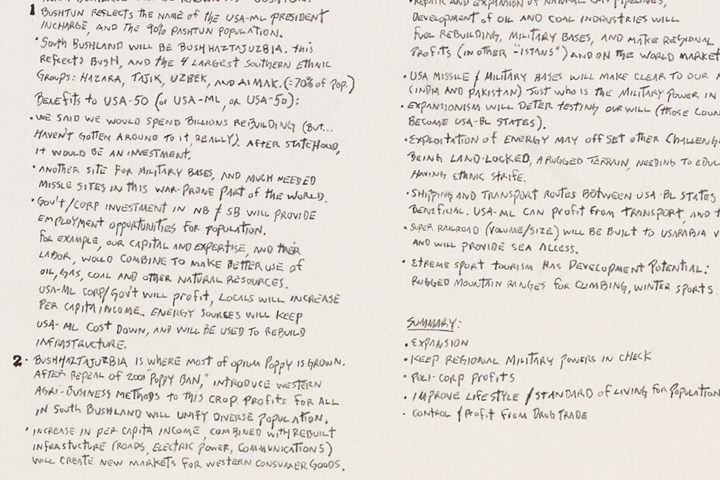 1 BUSHTUN REFLECTS THE NAME OF THE USA-ML PRESIDENT
INCHARGE, AND THE 90% PASHTUN POPULATION.
• SOUTH BUSHLAND WILL BE BUSHHAZTAJUZBIA. THIS
REFLECTS BUSH, AND THE 4 LARGEST SOUTHERN ETHNIC
GROUPS: HAZARA, TAJIK, UZBEK, AND AIMAK. (=70% OF POP.)
BENEFITS TO USA-50 (OF USA-ML, OR USA-50):
• WE SAID WE WOULD SPEND BILLIONS REBUILDING (BUT...
HAVEN'T GOTTEN AROUND TO IT, REALLY). AFTER STATEHOOD,
IT WOULD BE AN INVESTMENT.
• ANOTHER SITE FOR MILITARY BASES, AND MUCH NEEDED
MISSLE SITES IN THIS WAR-PRONE PART OF THE WORLD.
• GOV'T/CORP INVESTMENT IN NB & SB WILL PROVIDE
EMPLOYMENT OPPURTUNITIES FOR POPULATION.
FOR EXAMPLE, OUR CAPITAL AND EXPERTISE, AND THEIR
LABOR, WOULD COMBINE TO MAKE BETTER USE OF
OIL, GAS, COAL AND OTHER NATURAL RESOURCES.
USA-ML CORP/GOV'T WILL PROFIT, LOCALS WILL INCREASE
PER CAPITA INCOME. ENERGY SOURCES WILL KEEP
USA-ML COST DOWN, AND WILL BE USED TO REBUILD
INFASTRUCTURE.
2 • BUSHHAZTAJUZBIA IS WHERE MOST OF OPIUM POPPY IS GROWN.
AFTER REPEAL OF 2001 "POPPY BAN," INTRODUCE WESTERN
AGRI-BUSINESS METHODS TO THIS CROP. PROFITS FOR ALL
IN SOUTH BUSHLAND WILL UNIFY DIVERSE POPULATION.
• INCREASE IN PER CAPITA INCOME, COMBINED WITH REBUILT
INFRASTUCTURE (ROADS, ELECTRIC POWER, COMMUNICATIONS)
WILL CREATE NEW MARKETS FOR WESTERN CONSUMER GOODS.
• REPAIR AND EXPANSION OF NATURAL GAS PIPELINES,
DEVELOPMENT OF OIL AND COAL INDUSTRIES WILL
FUEL REBUILDING, MILITARY BASES, AND MAKE REGIONAL
PROFITS (IN OTHER "ISTANS") AND ON THE WORLD MARKET
• USA MISSLE / MILITARY BASES WILL MAKE CLEAR TO OUR
(INDIA AND PAKISTAN) JUST WHO IS THE MILITARY POWER IN
• EXPANSIONISM WILL DETER TESTING OUR WILL (THOSE
BECOME USA-BL STATES).
• EXPLOITATION OF ENERGY MAY OFF SET OTHER
BEING LAND-LOCKED, A RUGGED TERRAIN, NEEDING TO
HAVING ETHNIC STRIFE.
• SHIPPING AND TRANSPORT ROUTES BETWEEN USA-BL STATES
BENEFICIAL. USA-ML CAN PROFIT FROM TRANSPORT, AND
• SUPER RAILROAD (VOLUME/SIZE) WILL BE BUILT TO USARABIA
AND WILL PROVIDE SEA ACCESS.
• ETREME SPORT TOURISM HAS DEVELOPMENT POTENTIAL:
RUGGED MOUNTAIN RANGES FOR CLIMBING, WINTER SPORTS
SUMMARY:
• EXPANSION
• KEEP REGIONAL MILITARY POWERS IN CHECK
• POLI-CORP PROFITS
• IMPROVE LIFESTYLE / STANDARD OF LIVING FOR POPULATION
• CONTROL / PROFIT FROM DRUG TRADE